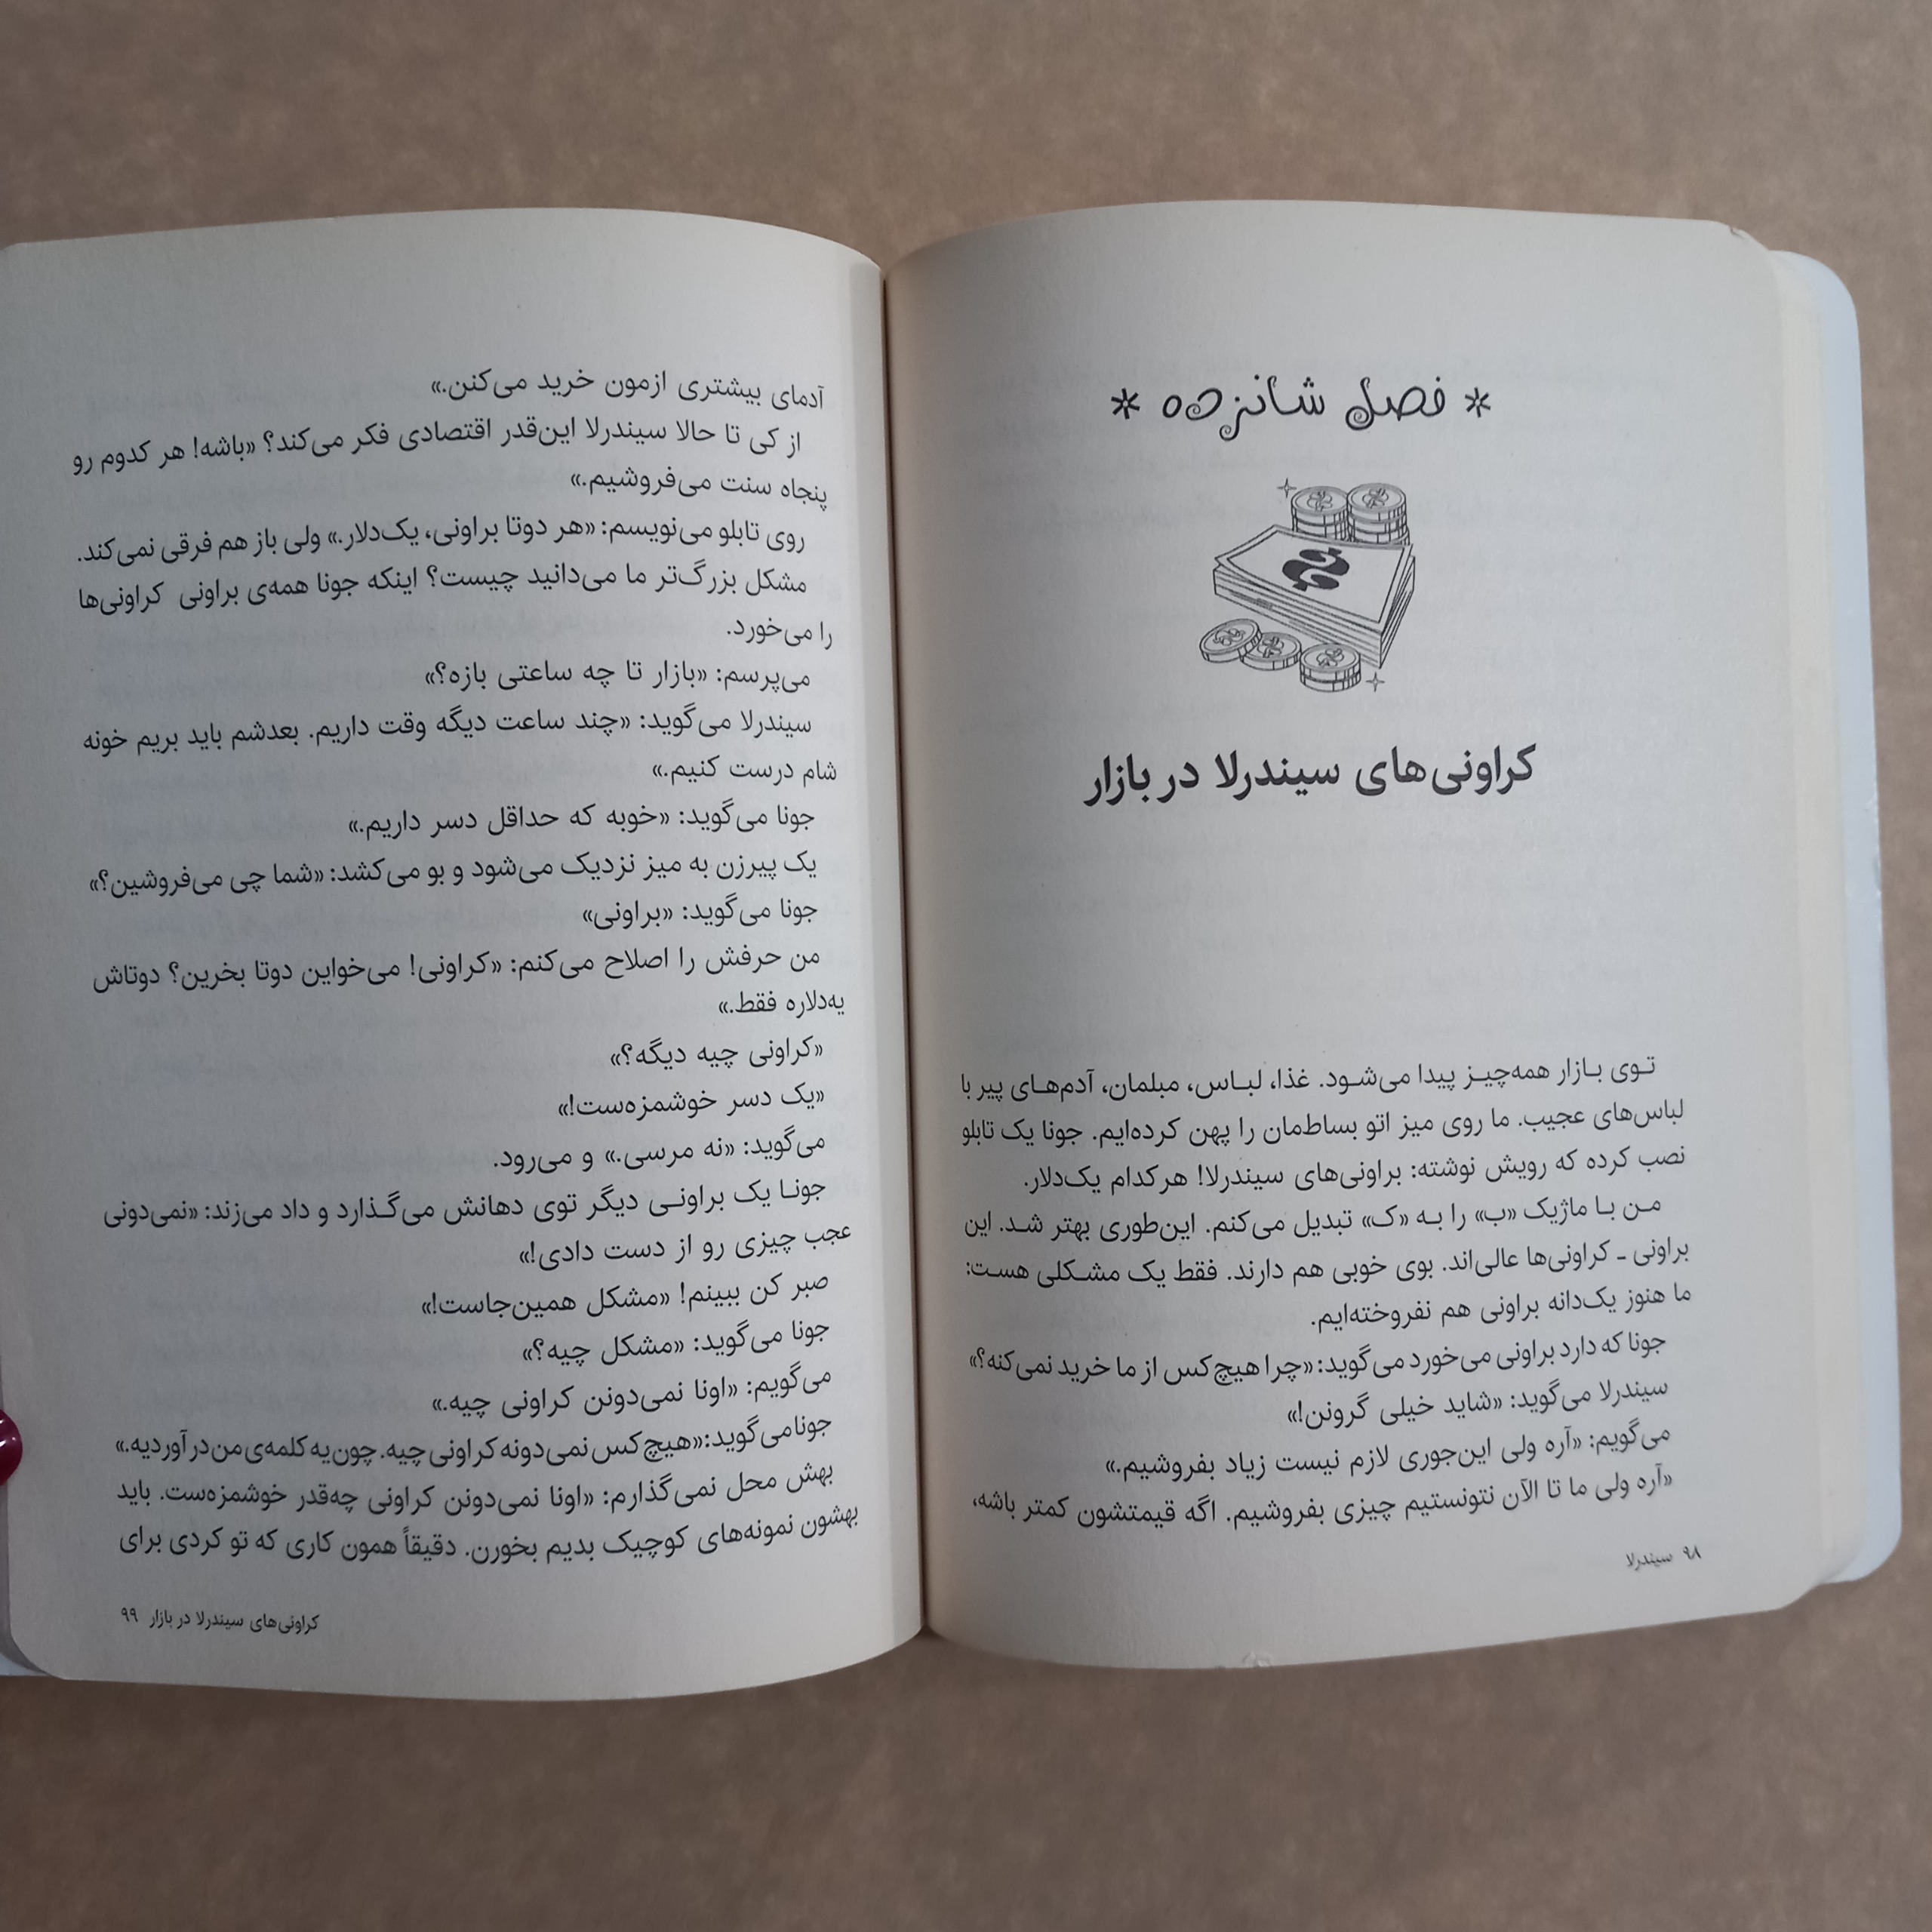 * فصل شانزده *
کراونی‌های سیندرلا در بازار
تـوی بـازار همه‌چیـز پیدا می‌شـود. غذا، لبـاس، مبلمان، آدم‌هـای پیر با
لباس‌های عجیب. ما روی میز اتو بساطمان را پهن کرده‌ایم. جونا یک تابلو
نصب کرده که رویش نوشته: براونی‌های سیندرلا! هرکدام یک‌دلار.
مـن بـا ماژیک «ب» را بـه «ک» تبدیل می‌کنم. این‌طوری بهتر شـد. این
براونی ـ کراونی‌ها عالی‌اند. بوی خوبی هم دارند. فقط یک مشـکلی هسـت:
ما هنوز یک‌دانه براونی هم نفروخته‌ایم.
جونا که دارد براونی می‌خورد می‌گوید: «چرا هیچ‌کس از ما خرید نمی‌کنه؟»
سیندرلا می‌گوید: «شاید خیلی گرونن!»
می‌گویم: «آره ولی این‌جوری لازم نیست زیاد بفروشیم.»
«آره ولی ما تا الآن نتونستیم چیزی بفروشیم. اگه قیمتشون کمتر باشه،
۹۸ سیندرلا
آدمای بیشتری ازمون خرید می‌کنن.»
از کی تا حالا سیندرلا این‌قدر اقتصادی فکر می‌کند؟ «باشه! هر کدوم رو
پنجاه سنت می‌فروشیم.»
روی تابلو می‌نویسم: «هر دوتا براونی، یک‌دلار.» ولی باز هم فرقی نمی‌کند.
مشکل بزرگ‌تر ما می‌دانید چیست؟ اینکه جونا همه‌ی براونی کراونی‌ها
را می‌خورد.
می‌پرسم: «بازار تا چه ساعتی بازه؟»
سیندرلا می‌گوید: «چند ساعت دیگه وقت داریم. بعدشم باید بریم خونه
شام درست کنیم.»
جونا می‌گوید: «خوبه که حداقل دسر داریم.»
یک پیرزن به میز نزدیک می‌شود و بو می‌کشد: «شما چی می‌فروشین؟»
جونا می‌گوید: «براونی»
من حرفش را اصلاح می‌کنم: «کراونی! می‌خواین دوتا بخرین؟ دوتاش
یه‌دلاره فقط.»
«کراونی چیه دیگه؟»
«یک دسر خوشمزه‌ست!»
می‌گوید: «نه مرسی.» و می‌رود.
جونـا یک براونـی دیگر توی دهانش می‌گـذارد و داد می‌زند: «نمی‌دونی
عجب چیزی رو از دست دادی!»
صبر کن ببینم! «مشکل همین‌جاست!»
جونا می‌گوید: «مشکل چیه؟»
می‌گویم: «اونا نمی‌دونن کراونی چیه.»
جونا می‌گوید: «هیچ‌کس نمی‌دونه کراونی چیه. چون یه کلمه‌ی من‌درآوردیه.»
بهش محل نمی‌گذارم: «اونا نمی‌دونن کراونی چه‌قدر خوشمزه‌ست. باید
بهشون نمونه‌های کوچیک بدیم بخورن. دقیقاً همون کاری که تو کردی برای
کراونی‌های سیندرلا در بازار ۹۹